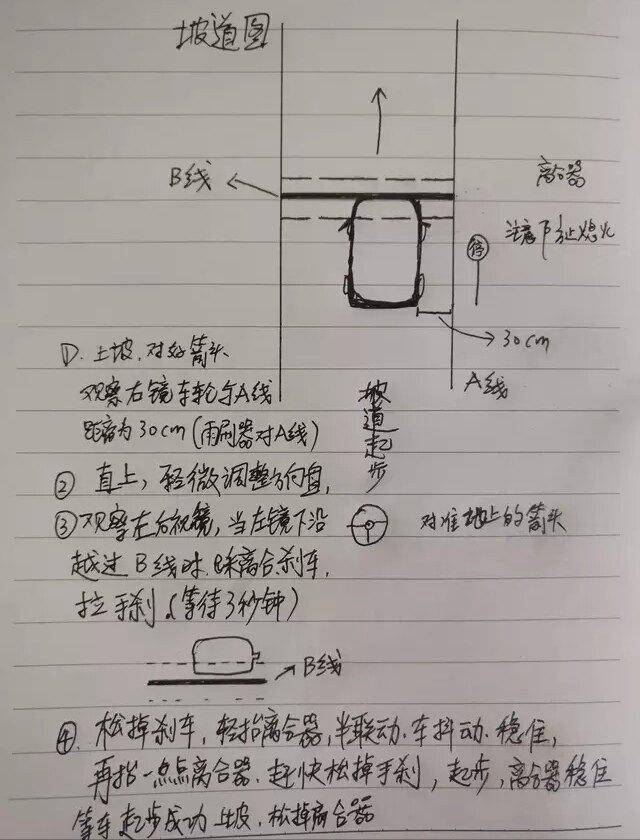 坡道图
B线
离合器
注意下坡熄火
停
30cm
A线
坡道起步
①.上坡.对好箭头
观察右镜车轮与A线
距离为30cm(雨刷器对A线)
② 直上,轻微调整方向盘,
③观察左后视镜,当左镜下沿
越过B线时.踩离合刹车,
拉手刹(等待3秒钟)
对准地上的箭头
B线
④.松掉刹车,轻抬离合器,半联动.车抖动.稳住,
再抬一点点离合器.赶快松掉手刹,起步,离合器稳住
等车起步成功上坡.松掉离合器